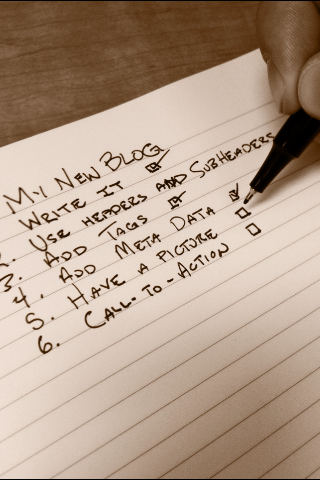 My New Blog
Write it
2. Use headers and Subheaders
3. Add Tags
4. Add Meta Data
5. Have a picture
6. Call-to-Action